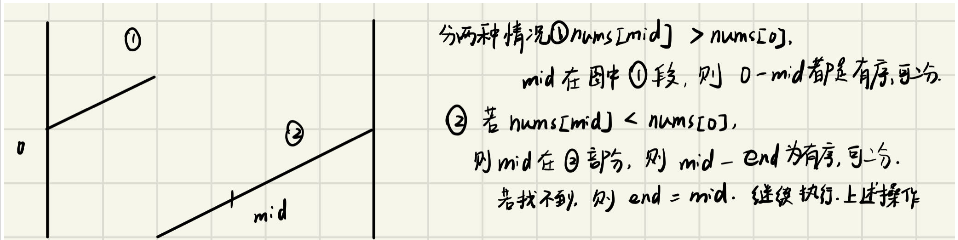 ①
0
②
mid
分两种情况①nums[mid] > nums[0],
mid在图中①段,则 0-mid都是有序,可二分.
② 若 nums[mid] < nums[0],
则mid在②部分,则 mid-end为有序,可二分.
若找不到,则 end = mid. 继续执行.上述操作